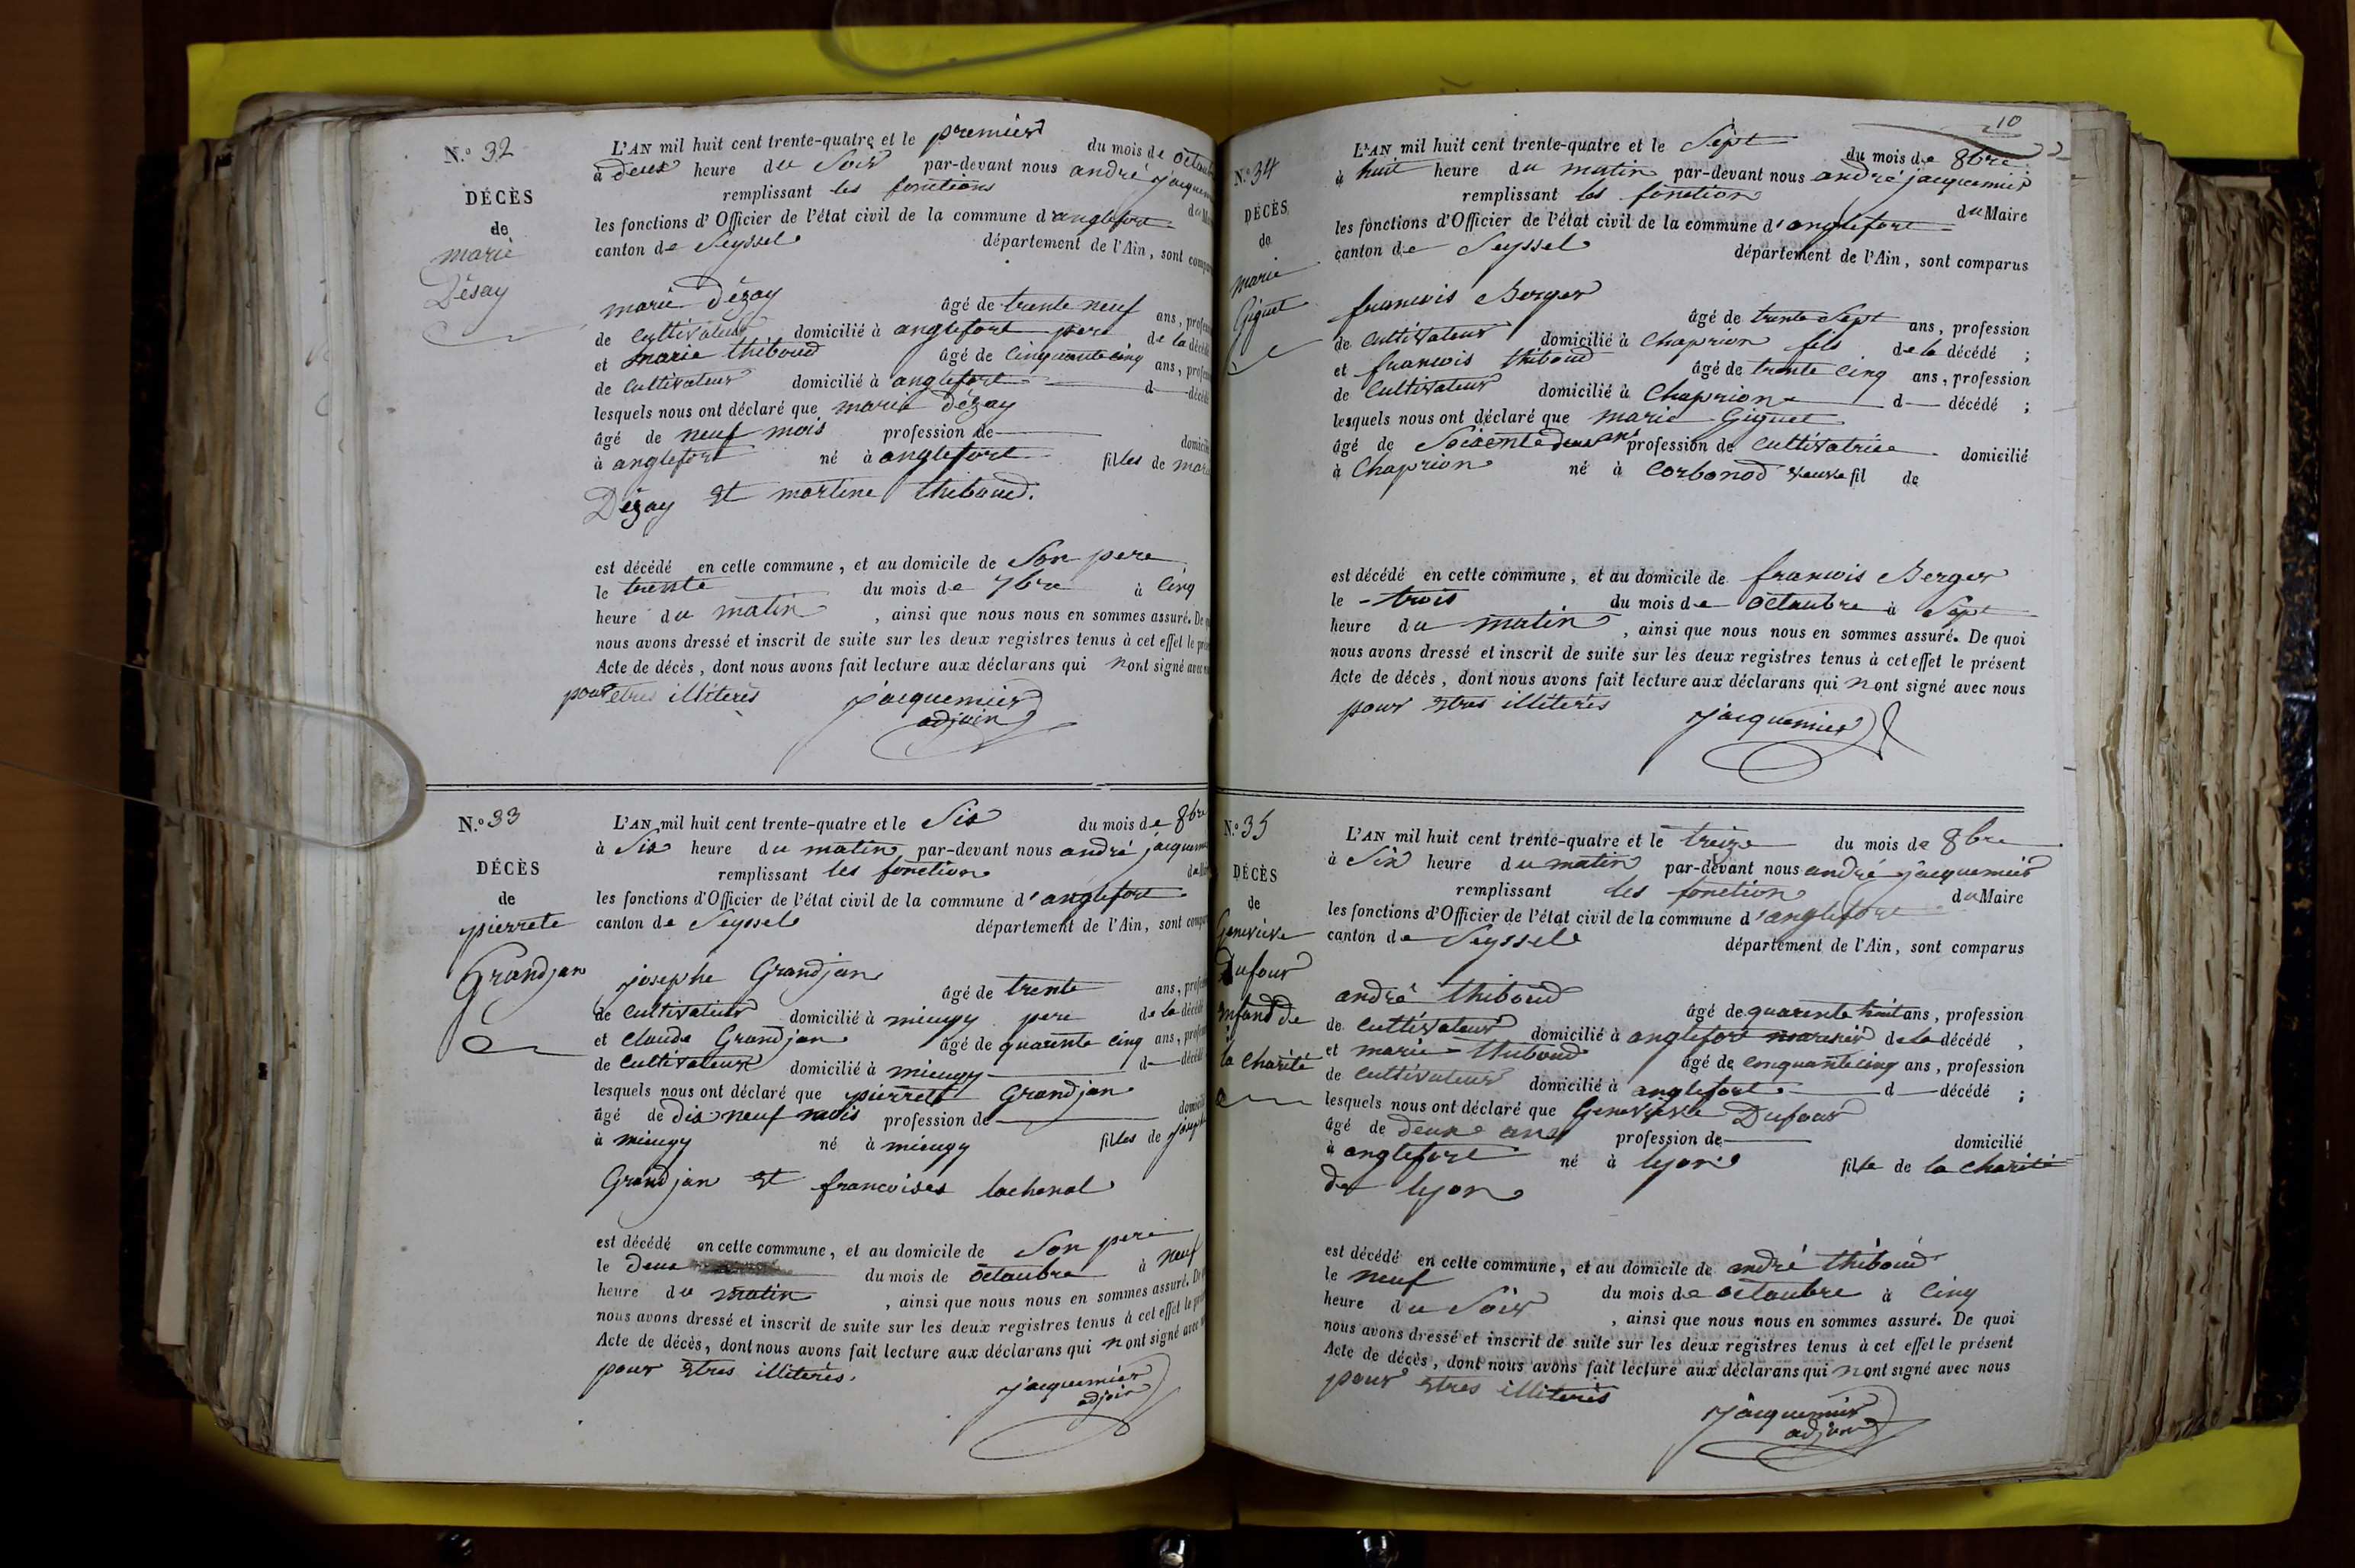 N.º 32
DÉCÈS
de
marie
Désay
L'AN mil huit cent trente-quatre et le premier du mois de octaub
à deux heure du Soir par-devant nous andré jacquem
remplissant les fonctions du M
les fonctions d'Officier de l'état civil de la commune d'anglefort
canton de Seyssel département de l'Ain, sont compa
marie Dézay âgé de trente neuf ans, profes
de Cultivateur domicilié à anglefort pere de la décéd
et marie thiboud âgé de Cinquante cinq ans, profes
de Cultivateur domicilié à anglefort d— décéd
lesquels nous ont déclaré que marie dézay
âgé de neuf mois profession de domicil
à anglefort né à anglefort filles de mari
Dézay et martine thiboud.
est décédé en cette commune, et au domicile de Son pere
le trente du mois de 7bre à Cinq
heure du matin, ainsi que nous nous en sommes assuré. De q
nous avons dressé et inscrit de suite sur les deux registres tenus à cet effet le pré
Acte de décès, dont nous avons fait lecture aux déclarans qui nont signé avec n
pour etres illiterés jacquemier
adjoin
N.º 33
DÉCÈS
de
pierrete
Grandjan
L'AN mil huit cent trente-quatre et le Six du mois de 8bre
à Six heure du matin par-devant nous andré jacquem
remplissant les fonction du M
les fonctions d'Officier de l'état civil de la commune d'anglefort
canton de Seyssel département de l'Ain, sont compa
josephe Grandjan âgé de trente ans, profes
de Cultivateur domicilié à mieugy pere de la décéd
et Claude Grandjan âgé de quarente cinq ans, profes
de Cultivateur domicilié à mieugy d— décéd
lesquels nous ont déclaré que pierrete Grandjan
âgé de dix neuf mois profession de domicil
à mieugy né à mieugy filles de joseph
Grandjan et francoises lachenal
est décédé en cette commune, et au domicile de Son pere
le deux du mois de octaubre à neuf
heure du matin, ainsi que nous nous en sommes assuré. De
nous avons dressé et inscrit de suite sur les deux registres tenus à cet effet le pré
Acte de décès, dont nous avons fait lecture aux déclarans qui nont signé avec
pour etres illiterés.
jacquemier
adjoin
10
N.º 34
DÉCÈS
de
marie
Giguet
L'AN mil huit cent trente-quatre et le Sept du mois de 8bre
à huit heure du matin par-devant nous andré jacquemier
remplissant les fonction du Maire
les fonctions d'Officier de l'état civil de la commune d'anglefort
canton de Seyssel département de l'Ain, sont comparus
francois Berger âgé de trente Sept ans, profession
de Cultivateur domicilié à Chaprion fils de la décédé ;
et francois thiboud âgé de trente Cinq ans, profession
de Cultivateur domicilié à Chaprion d— décédé ;
lesquels nous ont déclaré que marie Giguet
âgé de Soixente deux ans profession de Cultivatrice domicilié
à Chaprion né à Corbonod veuve fil de
est décédé en cette commune, et au domicile de francois Berger
le trois du mois de octaubre à Sept
heure du matin, ainsi que nous nous en sommes assuré. De quoi
nous avons dressé et inscrit de suite sur les deux registres tenus à cet effet le présent
Acte de décès, dont nous avons fait lecture aux déclarans qui nont signé avec nous
pour etres illiterés jacquemier
N.º 35
DÉCÈS
de
Genevieve
Dufour
enfand de
la Charité
L'AN mil huit cent trente-quatre et le treize du mois de 8bre
à Six heure du matin par-devant nous andré jacquemier
remplissant les fonction du Maire
les fonctions d'Officier de l'état civil de la commune d'anglefort
canton de Seyssel département de l'Ain, sont comparus
andré thiboud âgé de quarente huit ans, profession
de Cultivateur domicilié à anglefort de la décédé ,
et marie thiboud âgé de Cinquante cinq ans, profession
de Cultivateur domicilié à anglefort d— décédé ;
lesquels nous ont déclaré que Genevieve Dufour
âgé de deux ans profession de domicilié
à anglefort né à lyon fille de la charité
de lyon
est décédé en cette commune, et au domicile de andré thiboud
le neuf du mois de octaubre à Cinq
heure du Soir, ainsi que nous nous en sommes assuré. De quoi
nous avons dressé et inscrit de suite sur les deux registres tenus à cet effet le présent
Acte de décès, dont nous avons fait lecture aux déclarans qui nont signé avec nous
pour etres illiterés
jacquemier
adjoin